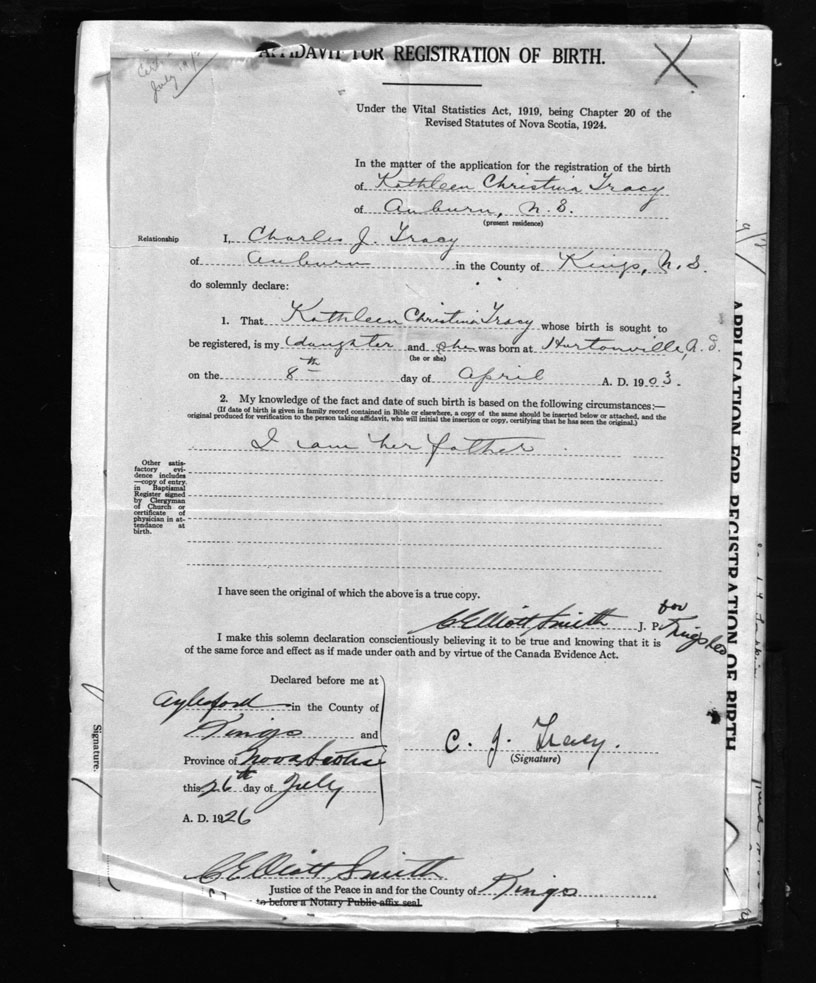 AFFIDAVIT FOR REGISTRATION OF BIRTH.
July 19/2
Under the Vital Statistics Act, 1919, being Chapter 20 of the
Revised Statutes of Nova Scotia, 1924.
In the matter of the application for the registration of the birth
of Kathleen Christina Tracy
of Auburn, N.S.
(present residence)
Relationship
I, Charles J. Tracy
of Auburn in the County of Kings, N.S.
do solemnly declare:
1. That Kathleen Christina Tracy whose birth is sought to
be registered, is my daughter and she was born at Hortonville, N.S.
(he or she)
on the 8th day of April A. D. 1903.
2. My knowledge of the fact and date of such birth is based on the following circumstances:—
(If date of birth is given in family record contained in Bible or elsewhere, a copy of the same should be inserted below or attached, and the
original produced for verification to the person taking affidavit, who will initial the insertion or copy, certifying that he has seen the original.)
I am her father.
Other satis-
factory evi-
dence includes
—copy of entry
in Baptismal
Register signed
by Clergyman
of Church or
certificate of
physician in at-
tendance at
birth.
I have seen the original of which the above is a true copy.
C Elliott Smith J. P. for Kings Co
I make this solemn declaration conscientiously believing it to be true and knowing that it is
of the same force and effect as if made under oath and by virtue of the Canada Evidence Act.
Declared before me at
Aylesford in the County of
Kings and
Province of Nova Scotia
this 26th day of July
A. D. 1926
C. J. Tracy.
(Signature)
C Elliott Smith
Justice of the Peace in and for the County of Kings
to before a Notary Public affix seal
APPLICATION FOR REGISTRATION OF BIRTH
Signature.